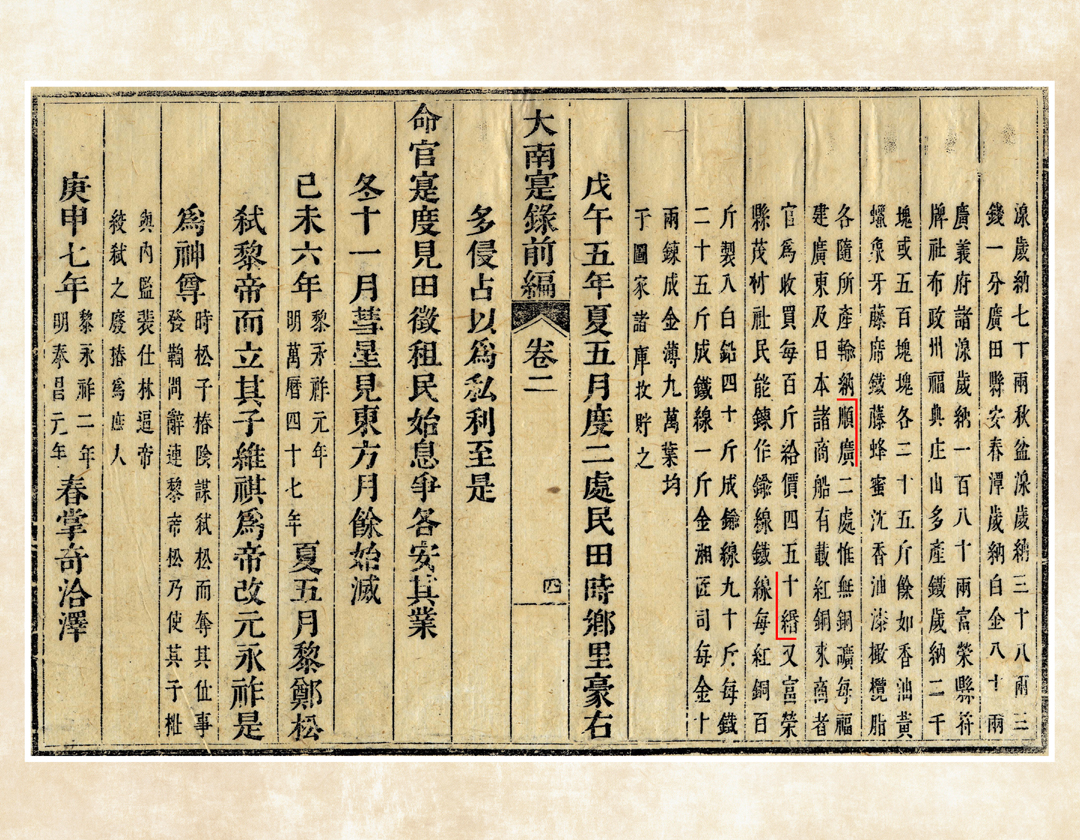 源歲納七十兩秋盆源歲納三十八兩三
錢一分廣田縣安春潭歲納白金八十兩
廣義府諸源歲納一百八十兩富榮縣符
牌社布政州福典庄山多產鐵歲納二千
塊或五百塊塊各二十五斤餘如香油黃
蠟象牙藤席鐵藤蜂蜜沈香油漆橄欖脂
各隨所產輸納順廣二處惟無銅礦每福
建廣東及日本諸商船有載紅銅來商者
官爲收買每百斤給價四五十緡又富榮
縣茂材社民能鍊作鍮線鐵線每紅銅百
斤製入白鉛四十斤成鍮線九十斤每鐵
二十五斤成鐵線一斤金湘匠司每金十
兩鍊成金薄九萬葉均
于圖家諸庫收貯之
戊午五年夏五月度二處民田時鄉里豪右
大南寔錄前編 卷二 四
多侵占以爲私利至是
命官寔度見田徵租民始息爭各安其業
冬十一月彗星見東方月餘始滅
己未六年 黎永祚元年 明萬曆四十七年 夏五月黎鄭松
弑黎帝而立其子維祺爲帝改元永祚是
爲神尊 時松子椿陰謀弑松而奪其位事
發鞫問辭連黎帝松乃使其子梉
與內監裴仕林逼帝
絞弑之廢椿爲庶人
庚申七年 黎永祚二年 明泰昌元年 春掌奇洽澤